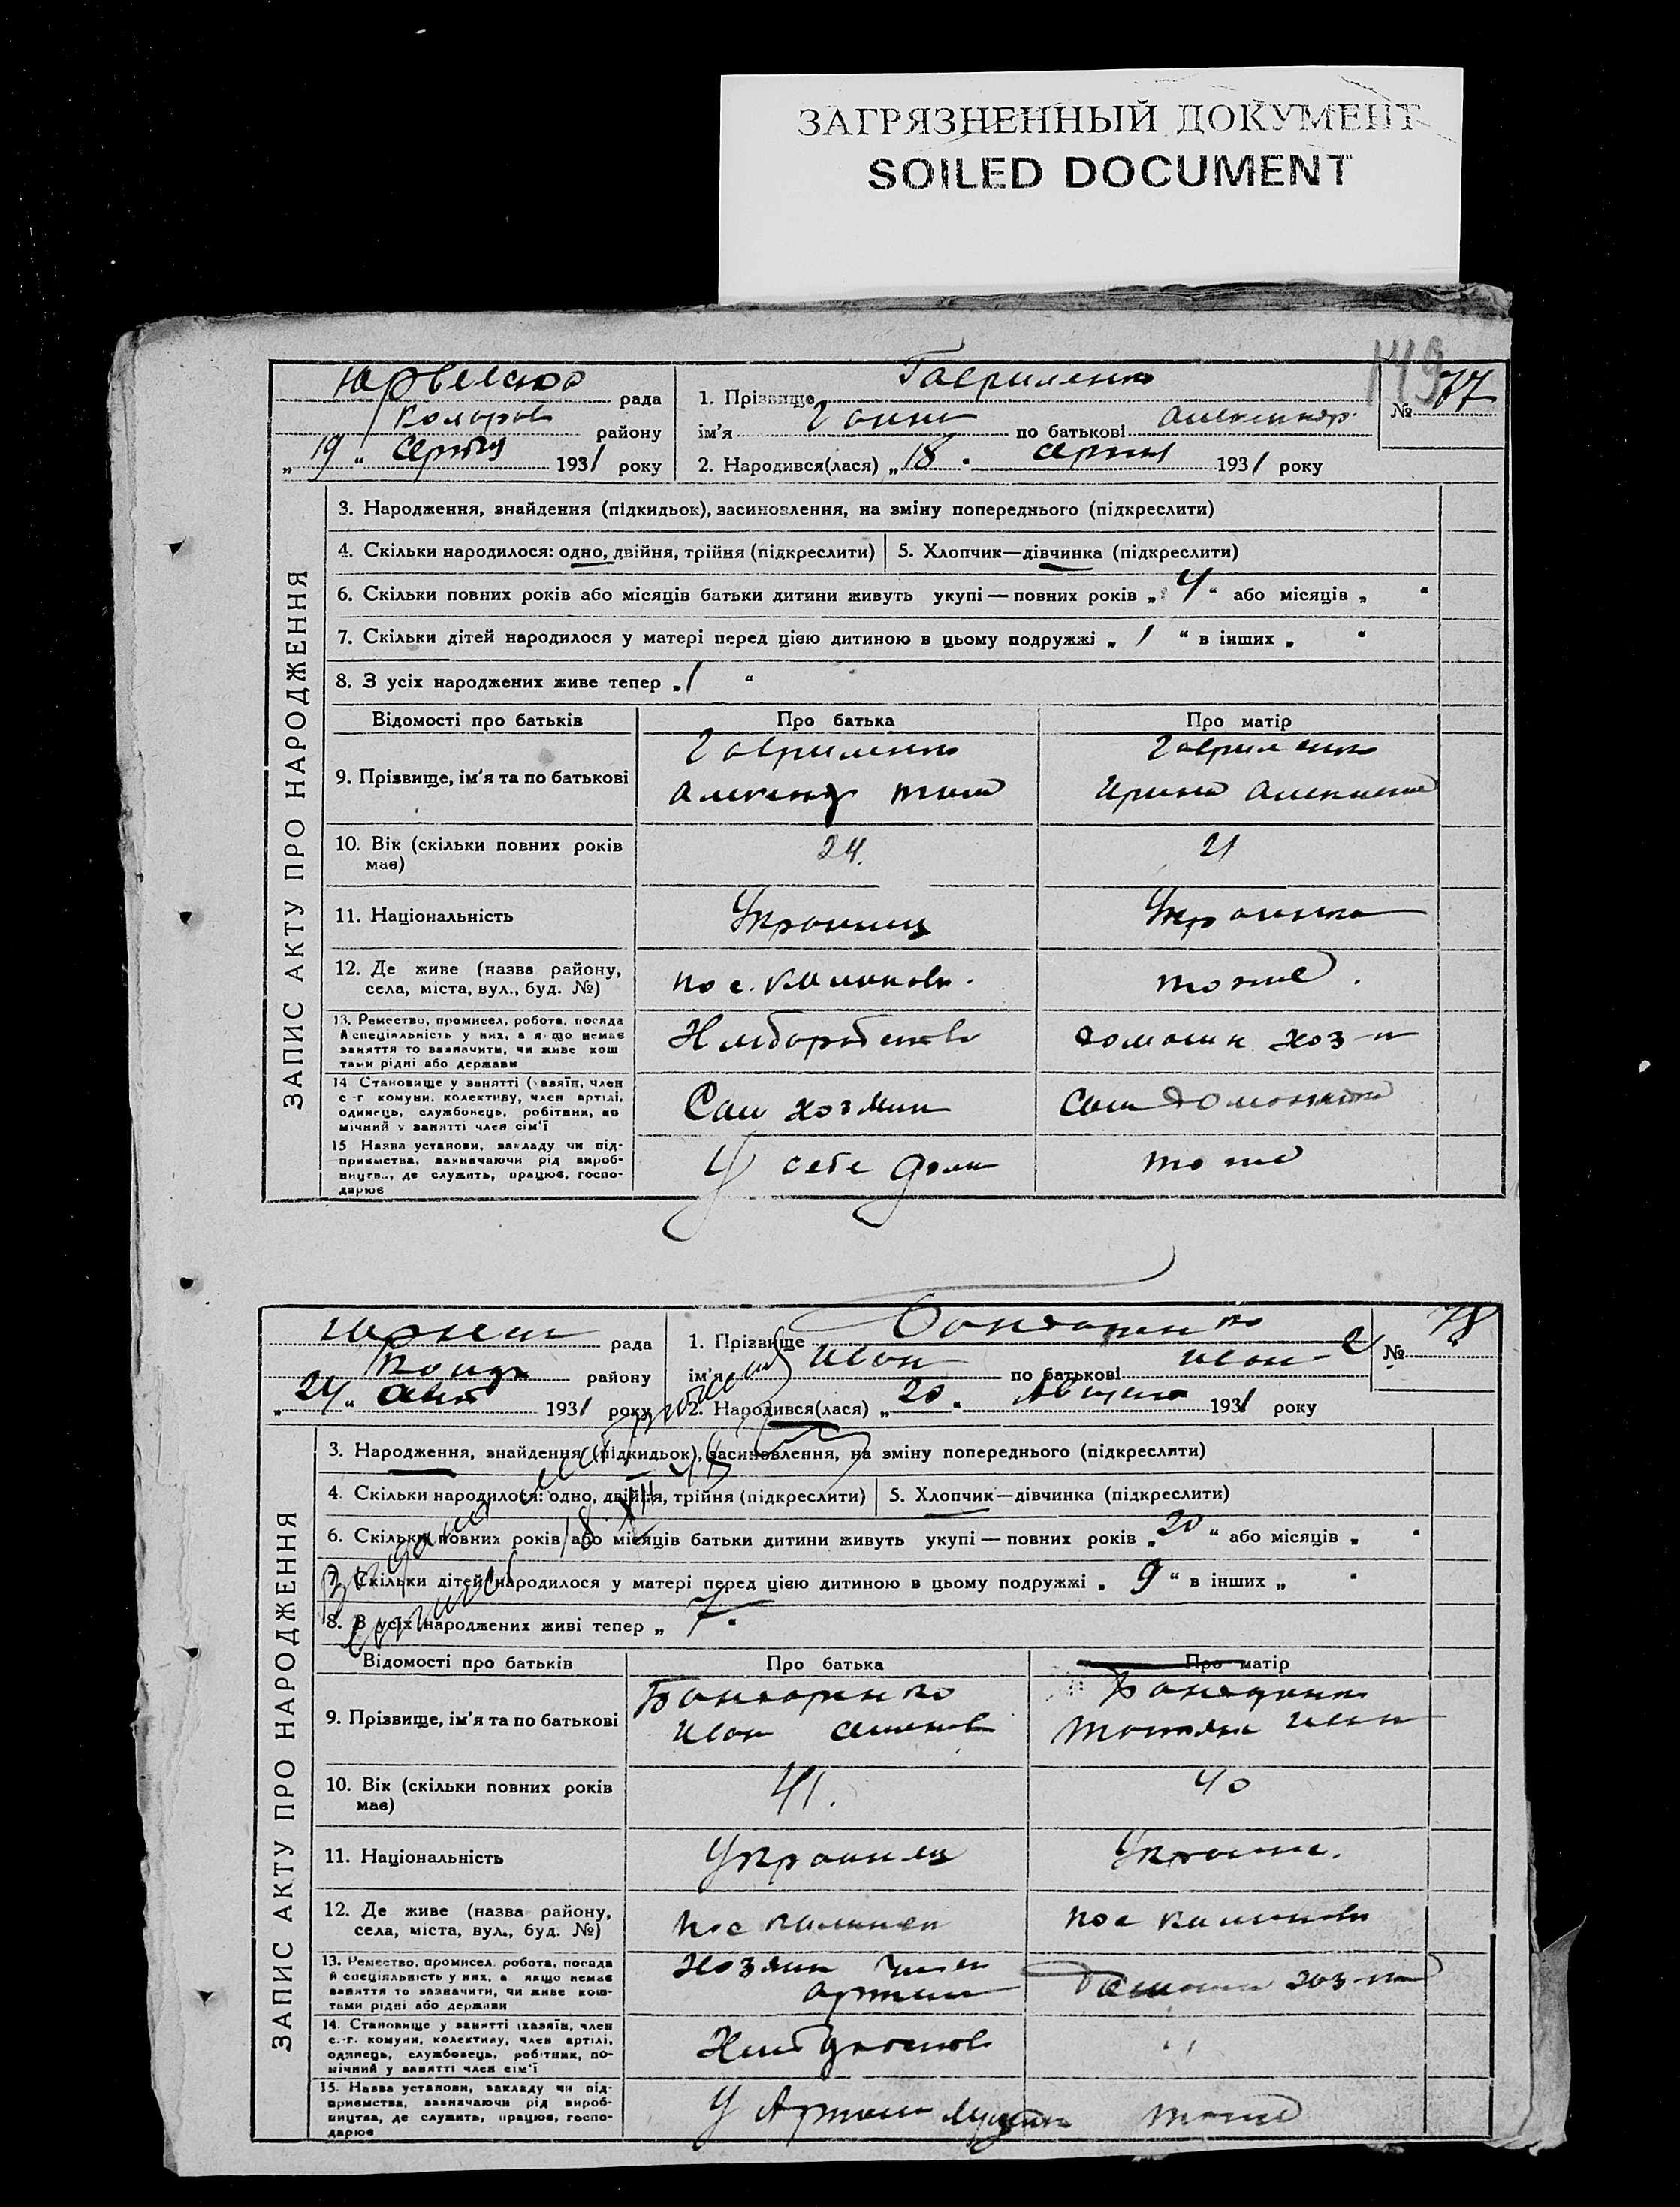 ЗАГРЯЗНЕННЫЙ ДОКУМЕНТ
SOILED DOCUMENT
149
рада
району
„19“ Серпня 1931 року
1. Прізвище Гавриленко
ім'я Ганна по батькові Александр.
2. Народився(лася) „18“ серпня 1931 року
№ 77
ЗАПИС АКТУ ПРО НАРОДЖЕННЯ
3. Народження, знайдення (підкидьок), засиновлення, на зміну попереднього (підкреслити)
4. Скільки народилося: одно, двійня, трійня (підкреслити)
5. Хлопчик—дівчинка (підкреслити)
6. Скільки повних років або місяців батьки дитини живуть укупі — повних років „4“ або місяців „ “
7. Скільки дітей народилося у матері перед цією дитиною в цьому подружжі „1“ в інших „ “
8. З усіх народжених живе тепер „1“
Відомості про батьків
Про батька
Про матір
9. Прізвище, ім'я та по батькові
Гавриленко
Гавриленко
Ирина
10. Вік (скільки повних років
має)
24.
21
11. Національність
Украинец
Украинка
12. Де живе (назва району,
села, міста, вул., буд. №)
пос.
тоже.
13. Ремество, промисел, робота, посада
й спеціяльність у них, а якщо немає
заняття то зазначити, чи живе кош
тами рідні або держави
домашн хоз-н
14 Становище у занятті (хазяїн, член
с-г комуни, колективу, член артілі,
одинець, службовець, робітник, по
мічний у занятті член сім'ї
Сам хозяин
Сама
15 Назва установи, закладу чи під-
приємства, зазначаючи рід вироб-
ництва, де служить, працює, госпо-
дарює
У себе дома
тоже
рада
району
„24“ 1931 року
1. Прізвище Бондаренко
ім'я Иван по батькові Иван
2. Народився(лася) „20“ Августа 1931 року
№ 78
ЗАПИС АКТУ ПРО НАРОДЖЕННЯ
3. Народження, знайдення (підкидьок), засиновлення, на зміну попереднього (підкреслити)
4. Скільки народилося: одно, двійня, трійня (підкреслити)
5. Хлопчик—дівчинка (підкреслити)
6. Скільки повних років або місяців батьки дитини живуть укупі — повних років „20“ або місяців „ “
7. Скільки дітей народилося у матері перед цією дитиною в цьому подружжі „9“ в інших „ “
8. З усіх народжених живі тепер „7“
Відомості про батьків
Про батька
Про матір
9. Прізвище, ім'я та по батькові
Бондаренко
Иван
10. Вік (скільки повних років
має)
41.
40
11. Національність
Украинец
12. Де живе (назва району,
села, міста, вул., буд. №)
пос
пос
13. Ремество, промисел, робота, посада
й спеціяльність у них, а якщо немає
заняття то зазначити, чи живе кош-
тами рідні або держави
Хозяин член
артели
хоз-н
14. Становище у занятті (хазяїн, член
с.-г. комуни, колективу, член артілі,
одинець, службовець, робітник, по-
мічний у занятті член сім'ї
15. Назва установи, закладу чи під-
приємства, зазначаючи рід вироб-
ництва, де служить, працює, госпо-
дарює
У Артели
тоже